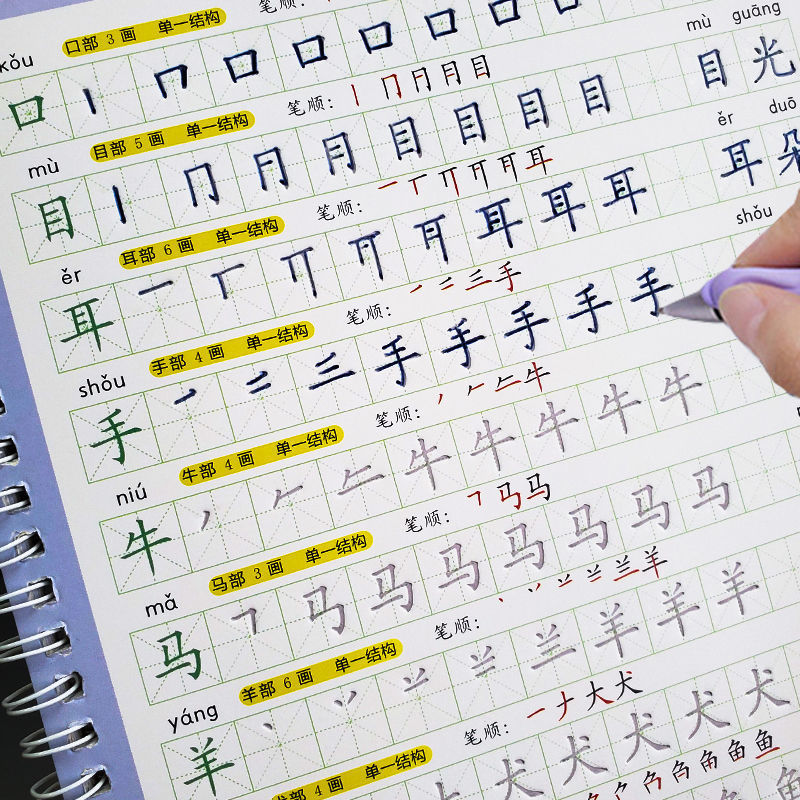 kǒu 口部 3 画 单一结构 笔顺:
口 丨 冂 口 口 口 口 口 口
mù 目部 5 画 单一结构 笔顺: 丨 冂 月 目 mù guāng
目 丨 冂 月 目 目 目 目 目光
ěr 耳部 6 画 单一结构 笔顺: 一 丅 耳 ěr duǒ
耳 一 丅 耳 耳 耳 耳朵
shǒu 手部 4 画 单一结构 笔顺: 丿 二 三 手 shǒu
手 丿 二 三 手 手 手 手 手
niú 牛部 4 画 单一结构 笔顺: 丿 𠂉 牛
牛 丿 𠂉 牛 牛 牛 牛 牛
mǎ 马部 3 画 单一结构 笔顺: ㇕ 马 马
马 ㇕ 马 马 马 马 马 马 马
yáng 羊部 6 画 单一结构 笔顺: 丶 丷 羊
羊 丶 丷 羊 羊 羊
犬部 4 画 单一结构 笔顺: 一 ナ 大 犬
犬 犬 犬 犬 犬
鱼